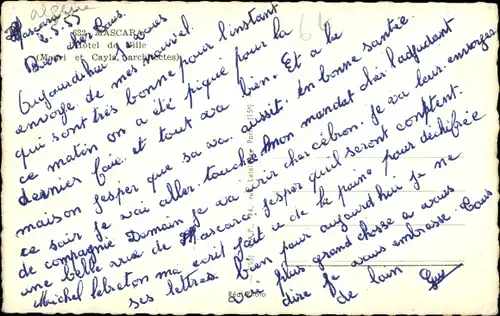 algérie
64
632. MASCARA
Hôtel de Ville
(Mauri et Cayla, architectes)
Mascara
8.5.53
Bien cher tous.
Aujourdhui je vous
envoye de mes nouvel.
qui sont très bonne pour l'instant
ce matin on a été piqué pour la
dernier foie. et tout va bien. Et a la
maison j'esper que sa va aussit. en bonne santée
ce soir je vai aller toucher mon mandat chér l'adjudant
de compagnie Demain je va voir cher cébron. je va leur envoyer
une belle vue de Mascara j'esper qu'il seront content.
Michel lebreton ma écrit fait u de la paine pour déchifrée
ses lettres. bien pour aujourd'hui je ne
voi plus grand chosse a vous
dire je vous embrasse. tous
de loin Guy